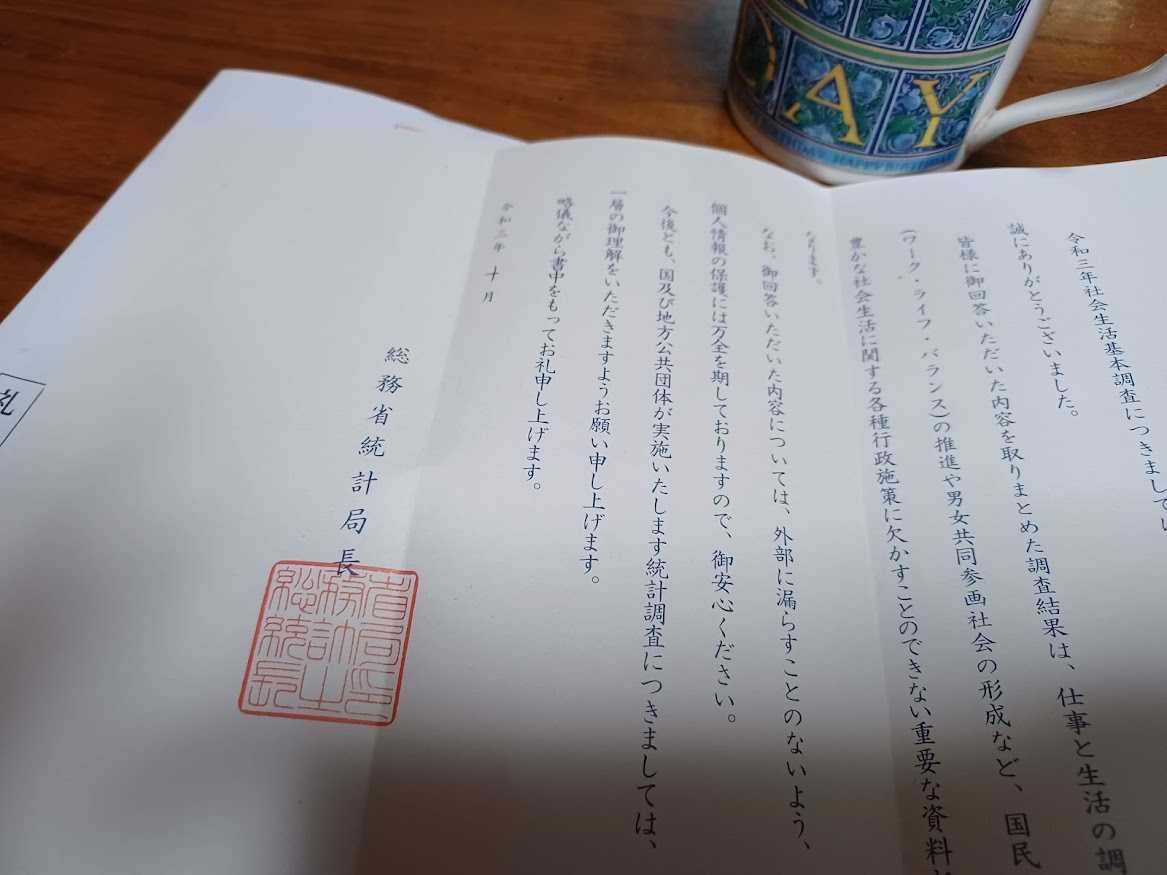 令和三年社会生活基本調査につきまして
誠にありがとうございました。
皆様に御回答いただいた内容を取りまとめた調査結果は、仕事と生活の調
(ワーク・ライフ・バランス)の推進や男女共同参画社会の形成など、国民
豊かな社会生活に関する各種行政施策に欠かすことのできない重要な資料
なります。
なお、御回答いただいた内容については、外部に漏らすことのないよう、
個人情報の保護には万全を期しておりますので、御安心ください。
今後とも、国及び地方公共団体が実施いたします統計調査につきましては、
一層の御理解をいただきますようお願い申し上げます。
略儀ながら書中をもってお礼申し上げます。
令和三年 十月
総務省統計局長
礼
AY
HAPPY